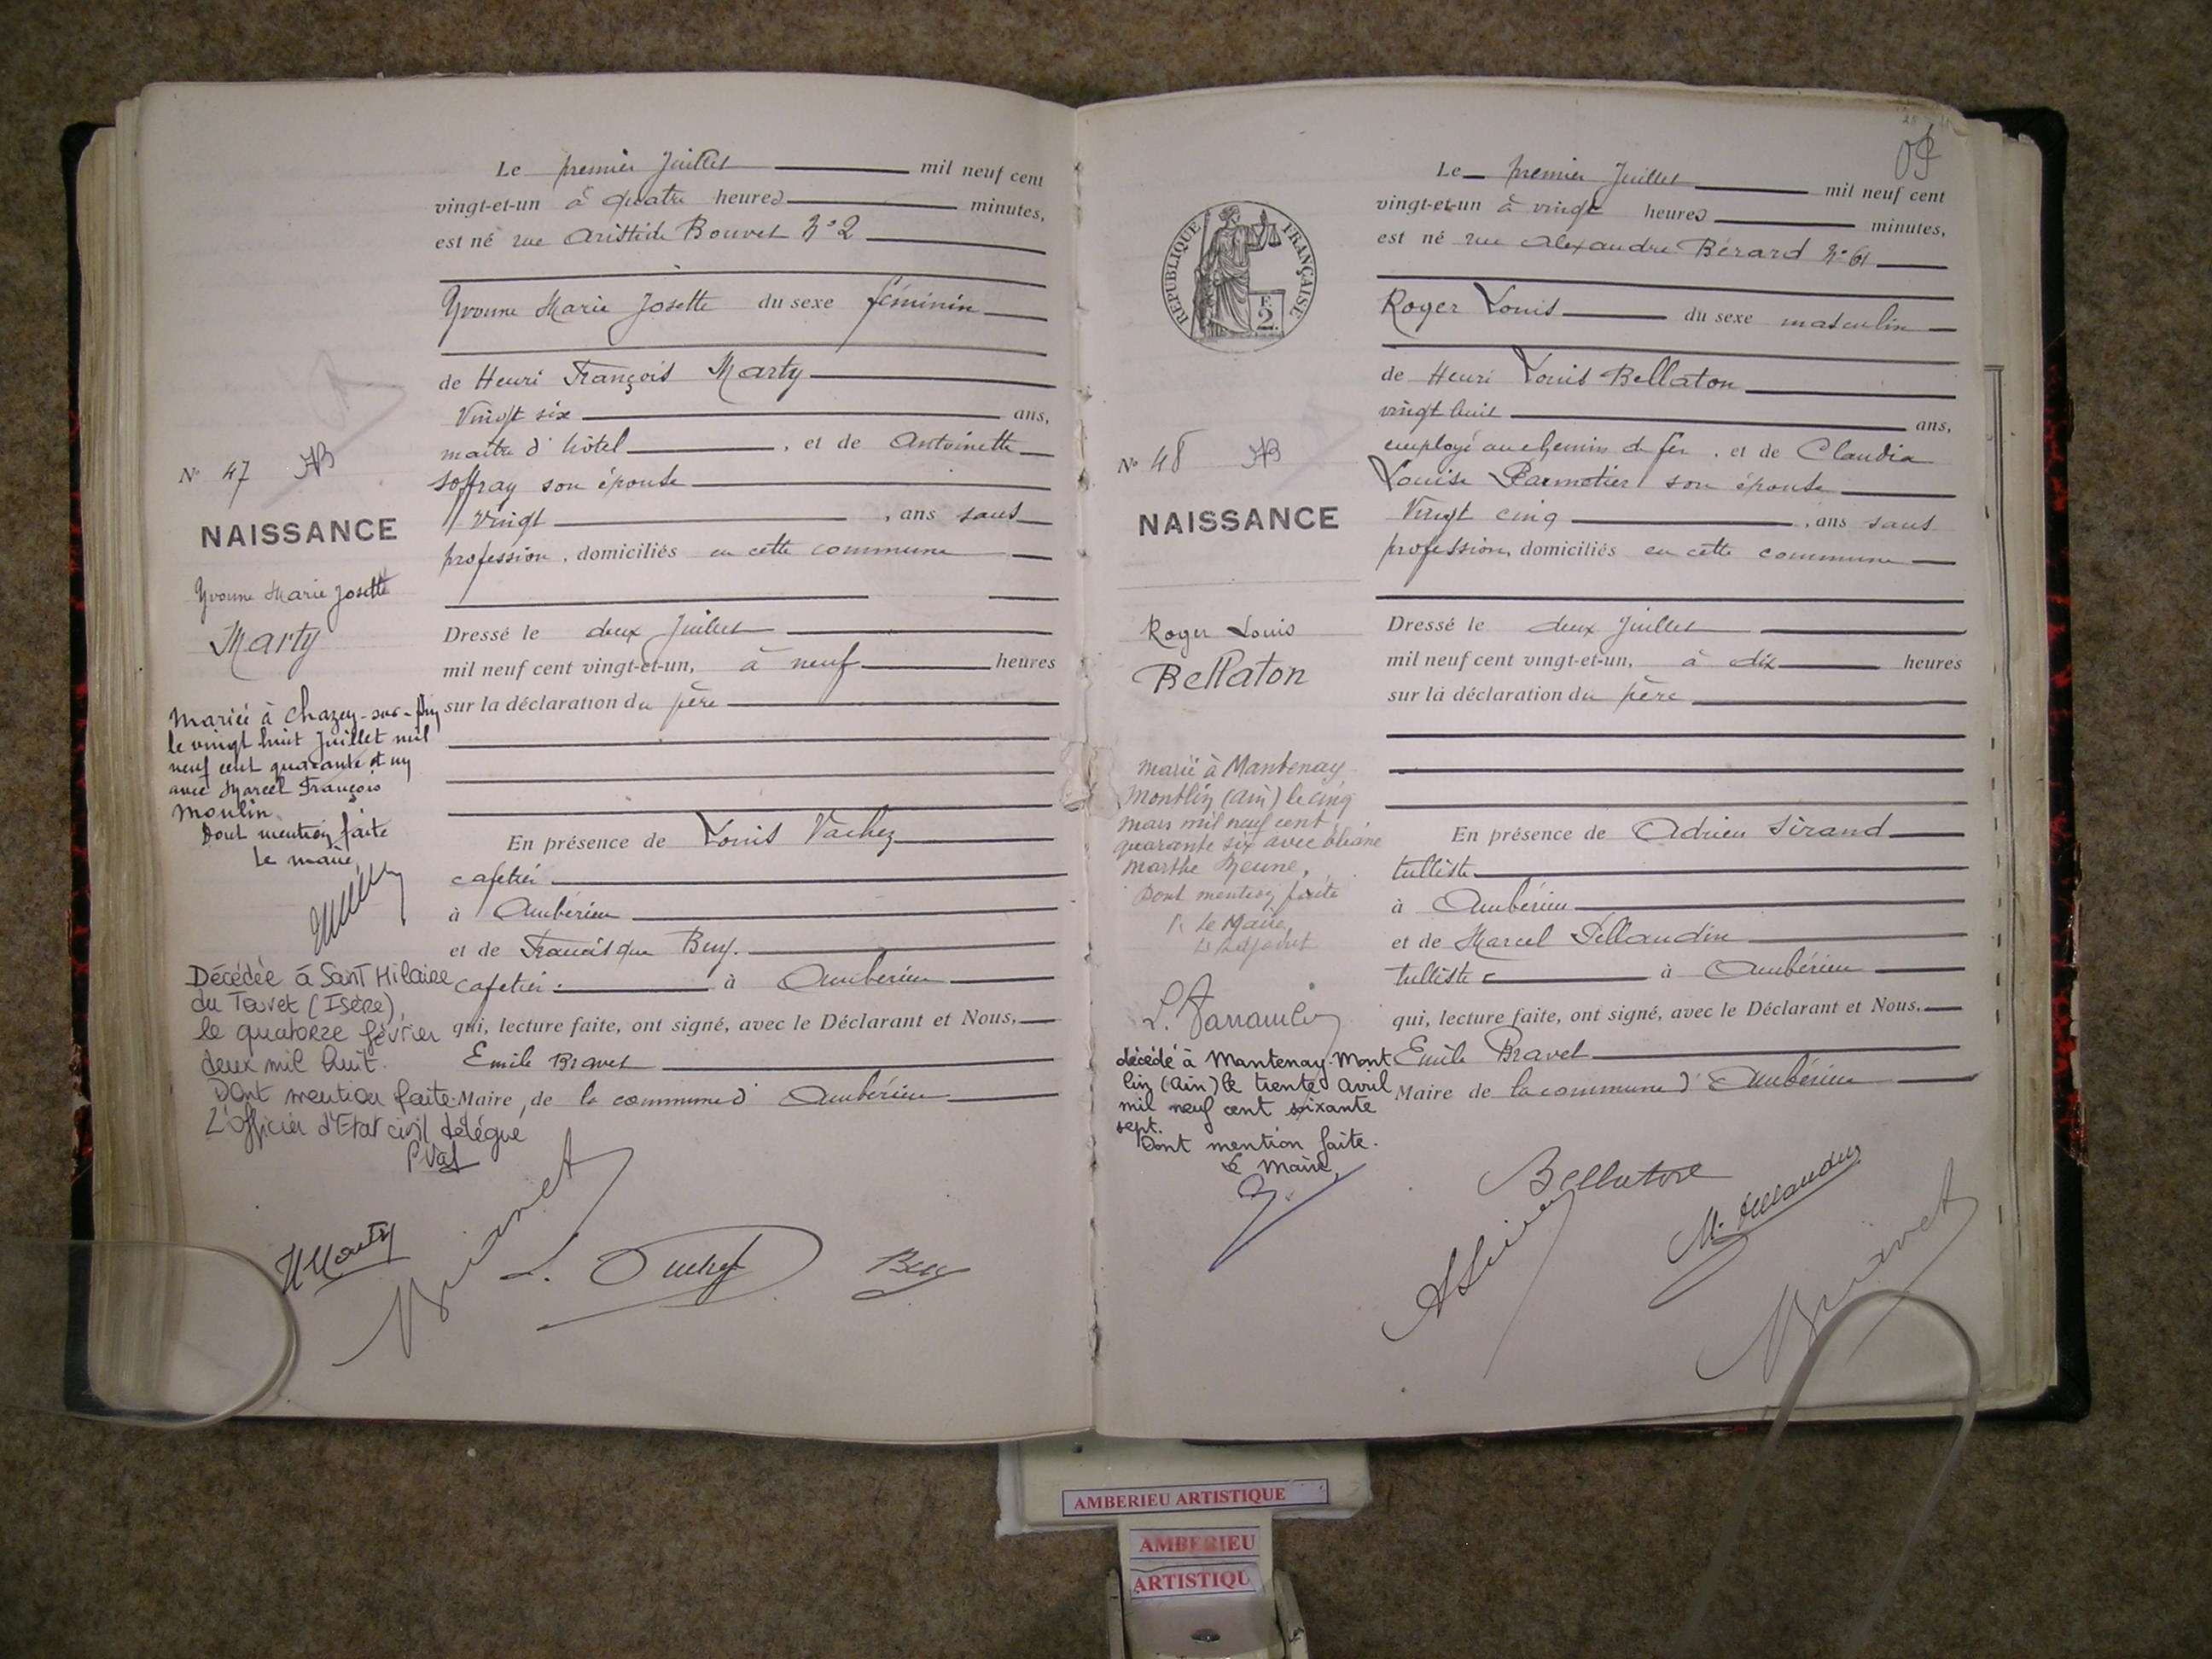 Le premier Juillet mil neuf cent
vingt-et-un à quatre heures minutes,
est né rue Aristide Bouvet N° 2
Yvonne Marie Josette du sexe féminin
de Henri François Marty
Vingt six ans,
maître d'hôtel, et de Antoinette
Soffray son épouse
Vingt, ans sans
profession, domiciliés en cette commune
N° 47
NAISSANCE
Yvonne Marie Josette
Marty
Dressé le deux Juillet
mil neuf cent vingt-et-un, à neuf heures
sur la déclaration du père
En présence de Louis Vachez
cafetier
à Ambérieu
et de Francisque Buy.
cafetier à Ambérieu
qui, lecture faite, ont signé, avec le Déclarant et Nous,
Emile Bravet
Maire de la commune d'Ambérieu
Mariée à Chazey-sur-Ain
le vingt huit Juillet mil
neuf cent quarante et un
avec Marcel François
Moulin.
Dont mention faite
Le maire
Décédée à Saint Hilaire
du Touvet (Isère)
le quatorze février
deux mil huit.
Dont mention faite
L'Officier d'Etat civil délégué
HMarty
Bravet
Buy
RÉPUBLIQUE FRANÇAISE
Le premier Juillet mil neuf cent
vingt-et-un à vingt heures minutes,
est né rue Alexandre Bérard N° 61
Roger Louis du sexe masculin
de Henri Louis Bellaton
vingt huit ans,
employé au chemin de fer, et de Claudia
Louise Parmetier son épouse
Vingt cinq, ans sans
profession, domiciliés en cette commune
N° 48
NAISSANCE
Roger Louis
Bellaton
Dressé le deux Juillet
mil neuf cent vingt-et-un, à dix heures
sur la déclaration du père
En présence de Adrien Sirand
tulliste
à Ambérieu
et de Marcel Pillaudin
tulliste à Ambérieu
qui, lecture faite, ont signé, avec le Déclarant et Nous,
Emile Bravet
Maire de la commune d'Ambérieu
marié à Mantenay
Montlin (Ain) le cinq
mars mil neuf cent
quarante six avec Eliane
Marthe
Dont mention faite
Le Maire,
L'adjoint
décédé à Mantenay-Mont
lin (Ain) le trente avril
mil neuf cent soixante
sept.
Dont mention faite.
Le Maire,
Bellaton
Bravet
AMBERIEU ARTISTIQUE
AMBERIEU
ARTISTIQU